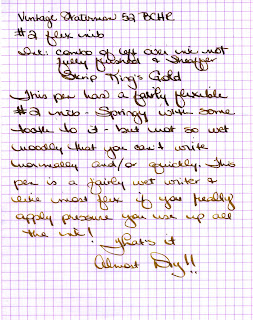 Vintage Waterman 52 BCHR
#2 flex nib
Ink: combo of left over ink not
fully flushed & Sheaffer
Skrip King's Gold
This pen has a fairly flexible
#2 nib - Springy with some
tooth to it - but not so wet
noodly that you can't write
normally and/or quickly. This
pen is a fairly wet writer &
like most flex if you really
apply pressure you use up all
the ink! That's it
Almost Dry!!